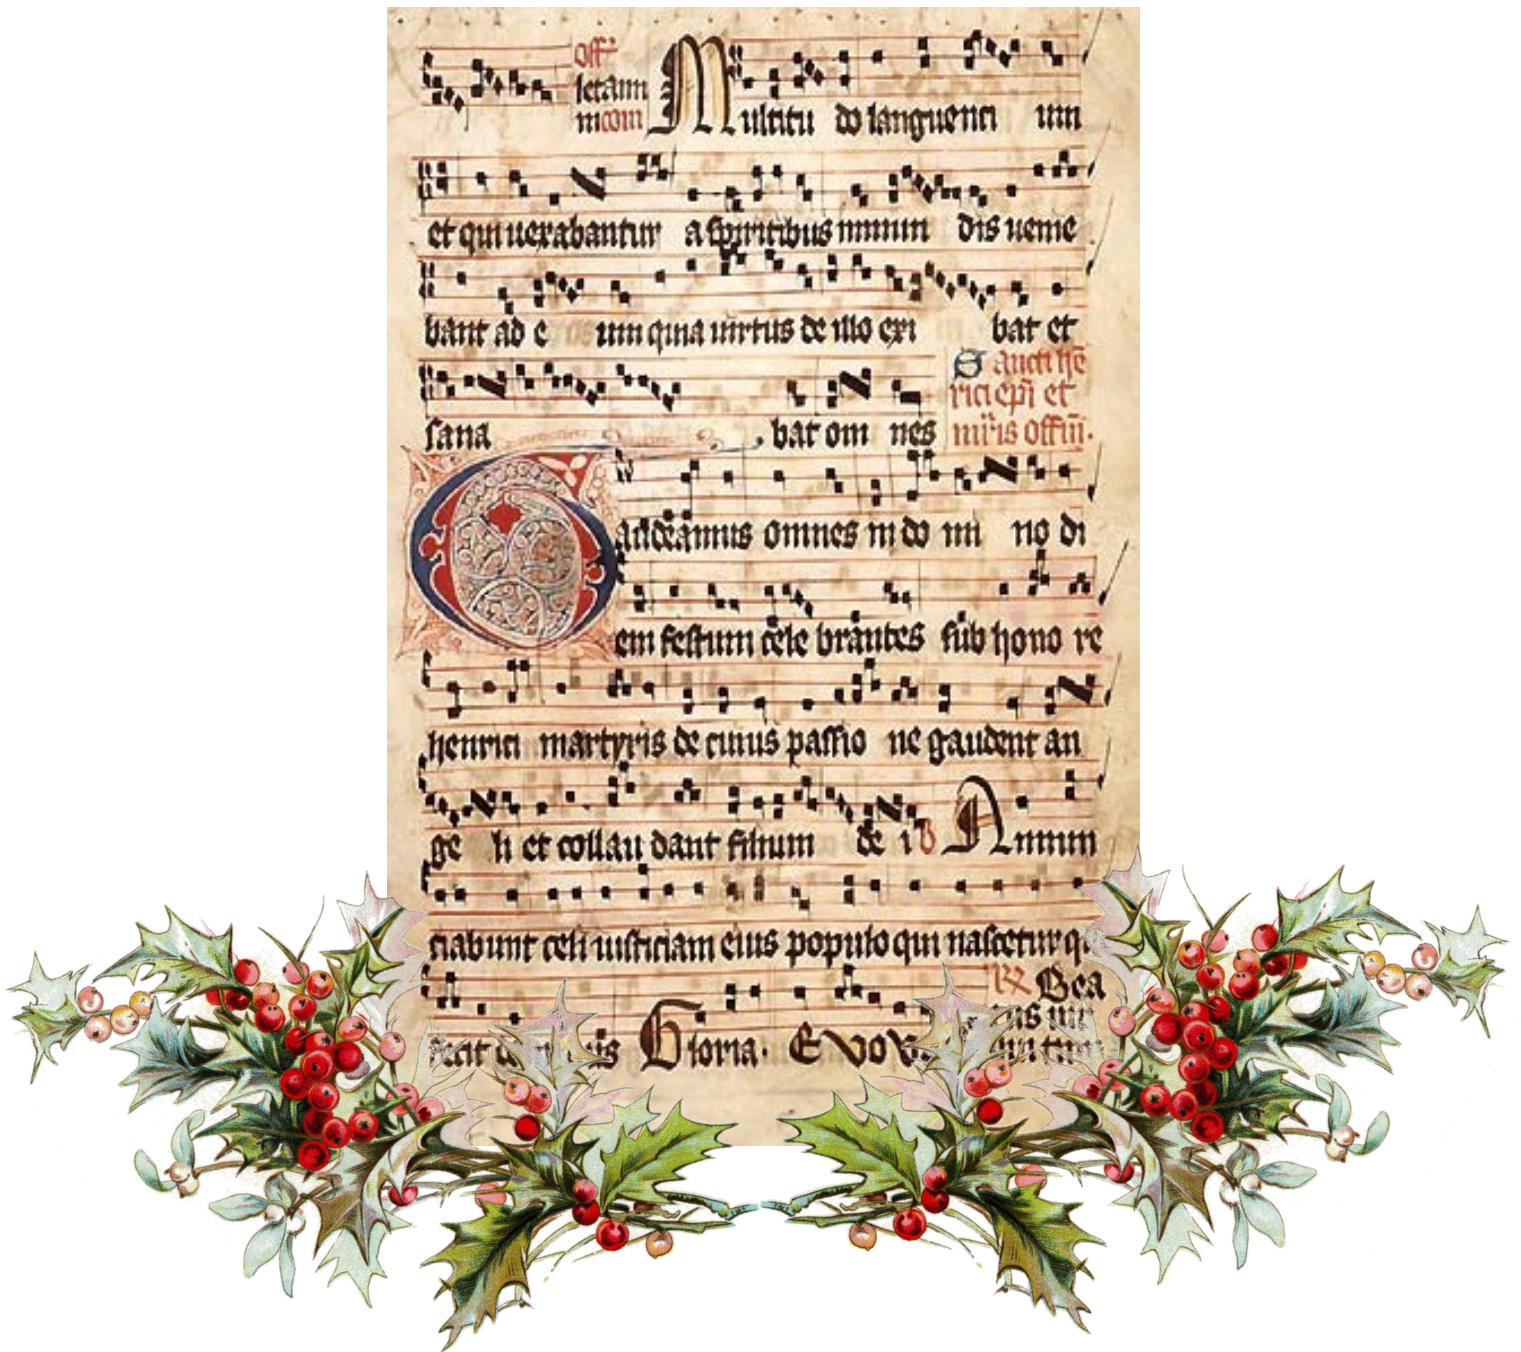 Off
letam
mcom Multitu do languenti um
et qui uexabantur a spiritibus inmun dis uenie
bant ad e um quia uirtus de illo exi bat et
sana bat om nes
Sancti hē
rici epi et
mr̄is offm̄.
Gaudeamus omnes in do mi no di
em festum cele brantes sub hono re
henrici martyris de cuius passio ne gaudent an
ge li et collau dant filium de i Annun
ciabunt celi iusticiam eius populo qui nascetur
fecit Gloria. Euou
Bea